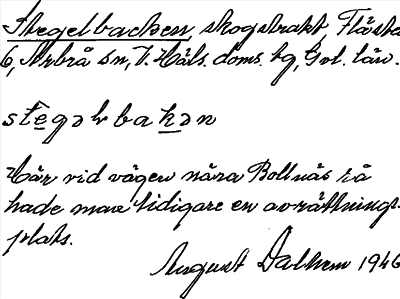 Stegelbacken, skogstrakt, Flästa
6, Arbrå sn, V. Häls. doms. tg, Gvl. län.
stēgəlbakən
Här vid vägen nära Bollnäs rå
hade man tidigare en avrättnings-
plats.
August Dalhem 1946